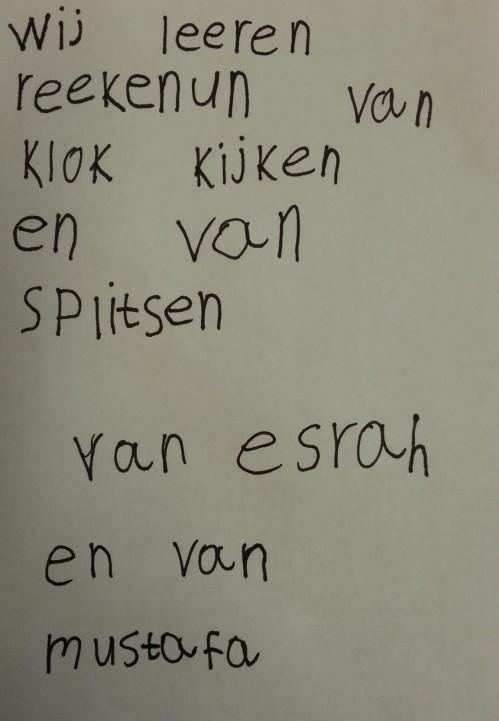 wij leeren
reekenun van
klok kijken
en van
spiitsen
van esrah
en van
mustafa